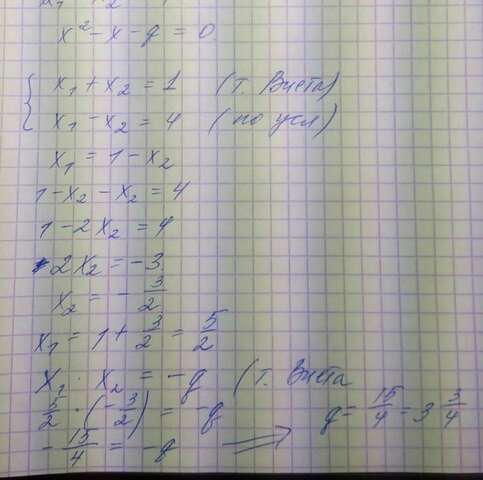 x² - x - q = 0
x₁ + x₂ = 1 (т. Виета)
x₁ - x₂ = 4 (по усл)
x₁ = 1 - x₂
1 - x₂ - x₂ = 4
1 - 2x₂ = 4
2x₂ = -3
x₂ = - 3/2
x₁ = 1 + 3/2 = 5/2
x₁ · x₂ = -q (т. Виета
5/2 · (- 3/2) = -q
- 15/4 = -q ⟹ q = 15/4 = 3 3/4